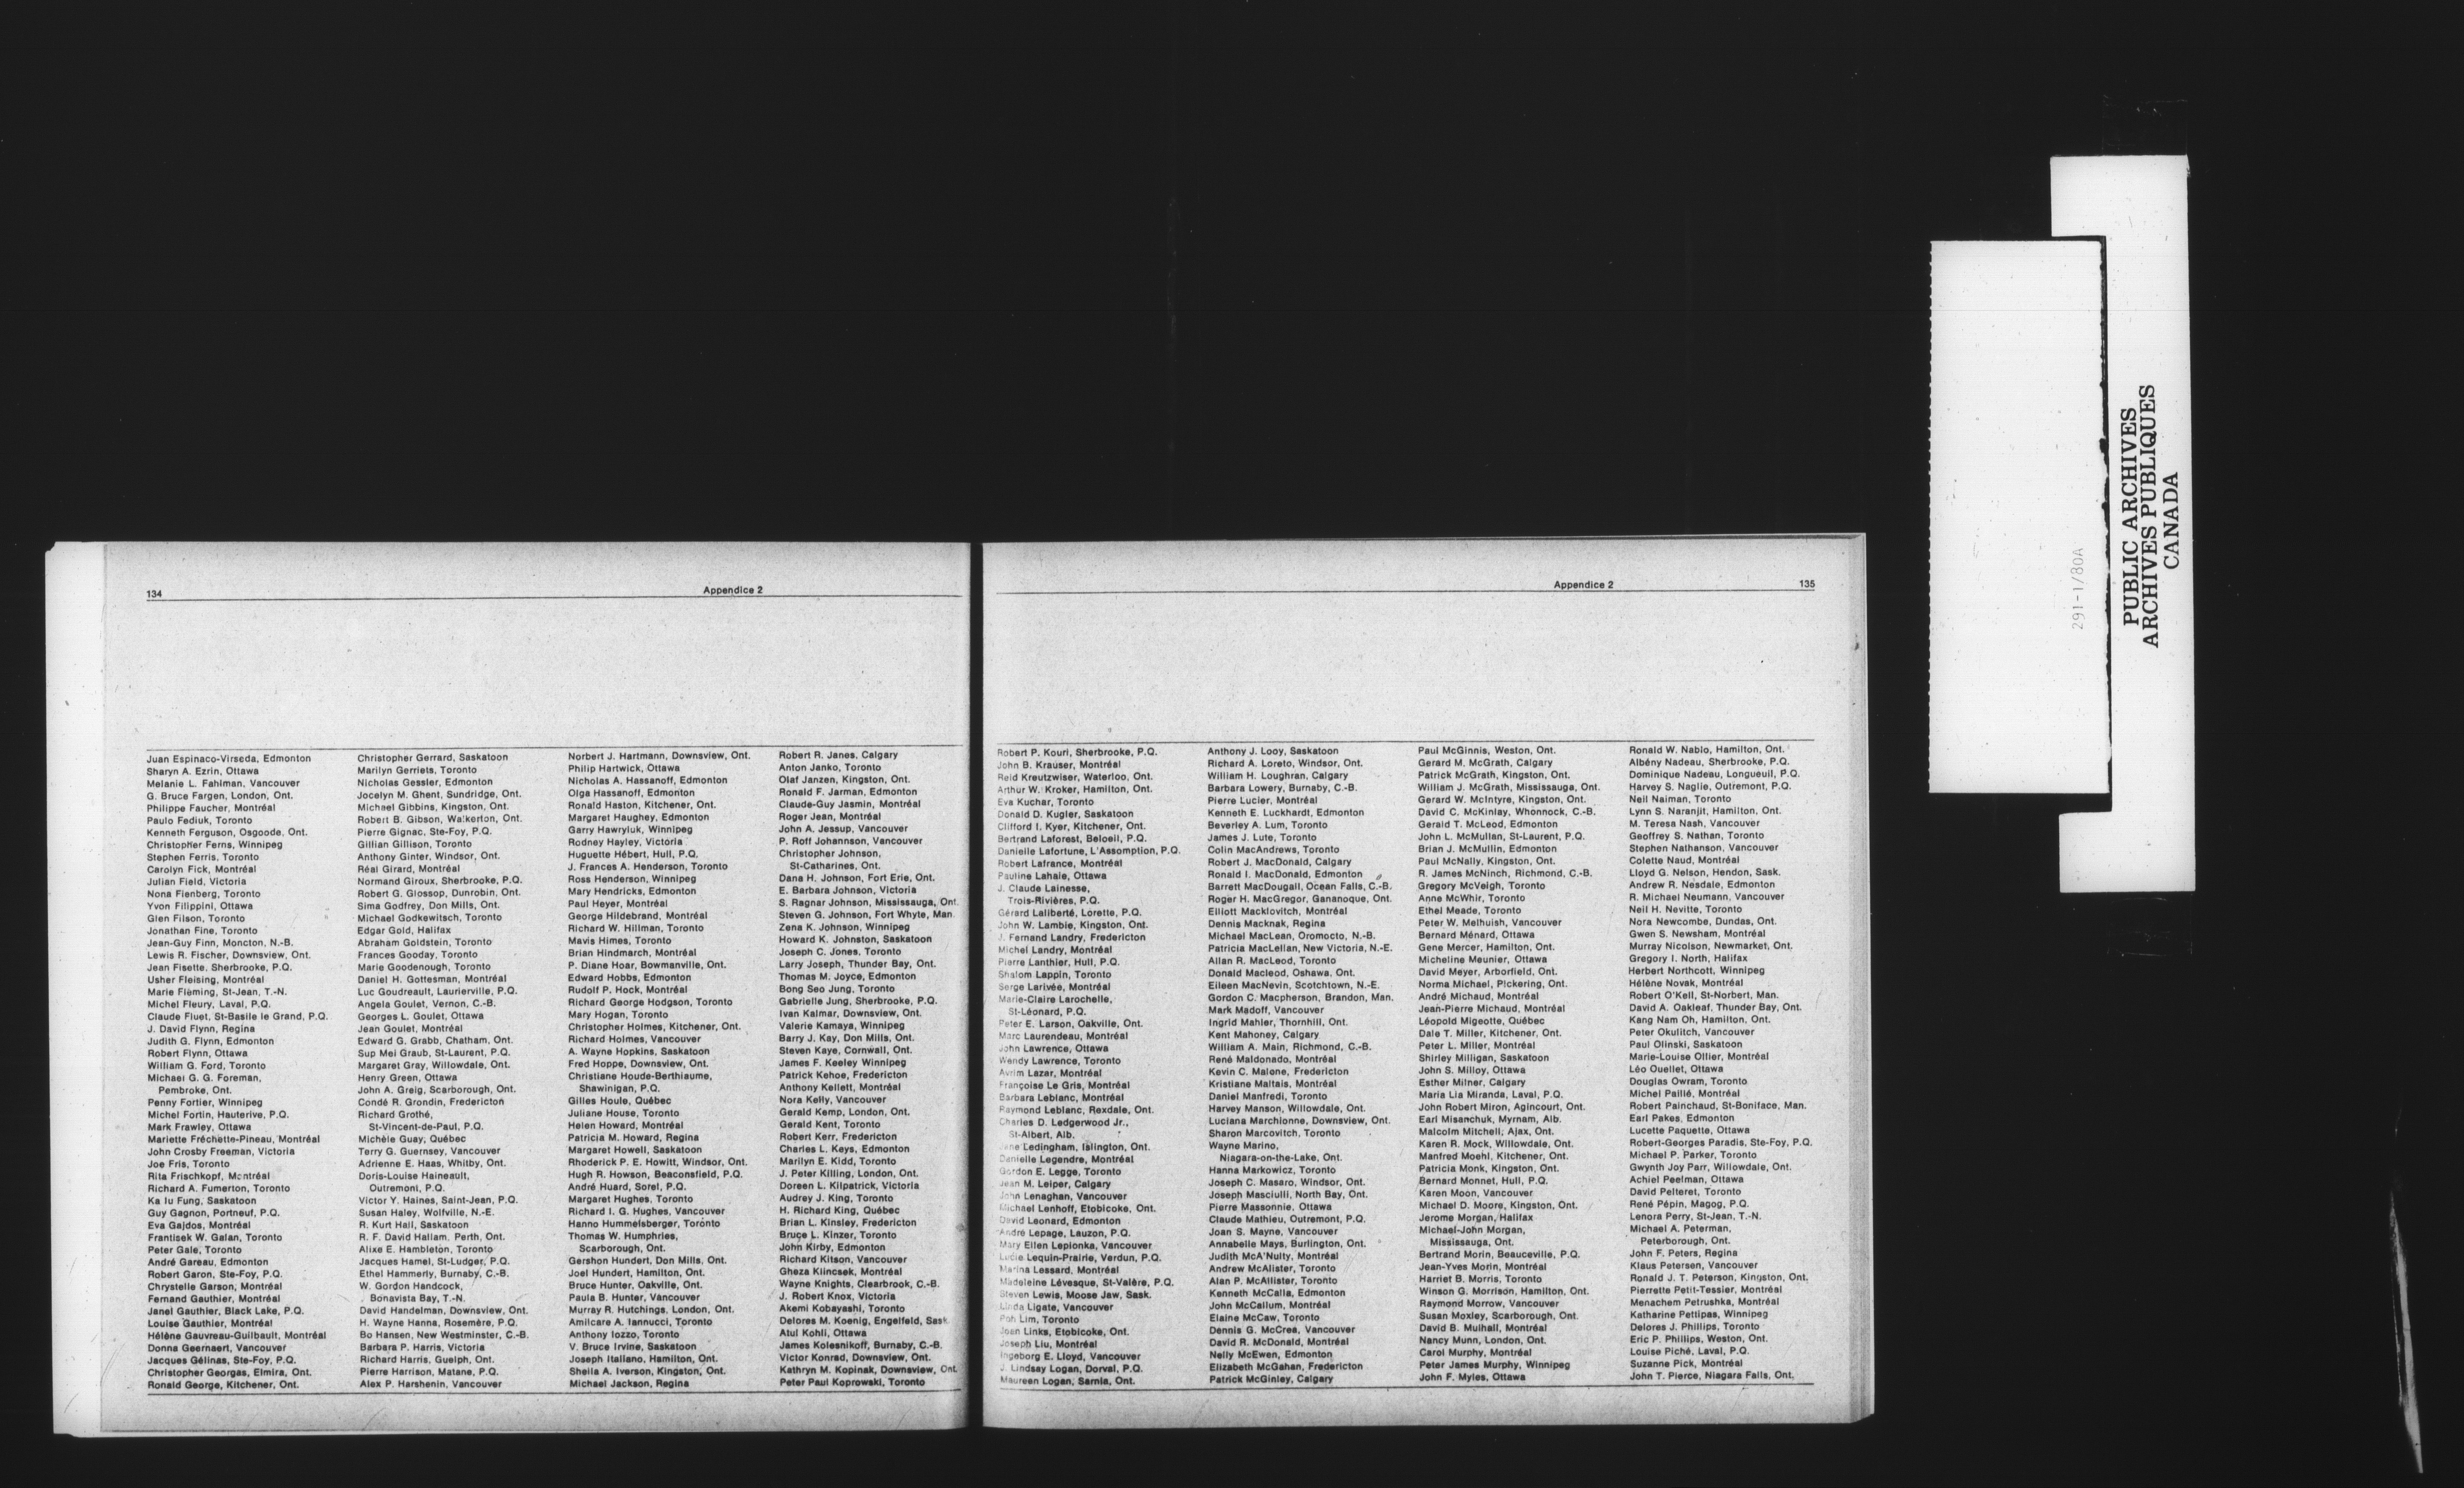 134
Appendice 2
Juan Espinaco-Virseda, Edmonton
Sharyn A. Ezrin, Ottawa
Melanie L. Fahlman, Vancouver
G. Bruce Fargen, London, Ont.
Philippe Faucher, Montréal
Paulo Fediuk, Toronto
Kenneth Ferguson, Osgoode, Ont.
Christopher Ferns, Winnipeg
Stephen Ferris, Toronto
Carolyn Fick, Montréal
Julian Field, Victoria
Nona Fienberg, Toronto
Yvon Filippini, Ottawa
Glen Filson, Toronto
Jonathan Fine, Toronto
Jean-Guy Finn, Moncton, N.-B.
Lewis R. Fischer, Downsview, Ont.
Jean Fisette, Sherbrooke, P.Q.
Usher Fleising, Montréal
Marie Fleming, St-Jean, T.-N.
Michel Fleury, Laval, P.Q.
Claude Fluet, St-Basile le Grand, P.Q.
J. David Flynn, Regina
Judith G. Flynn, Edmonton
Robert Flynn, Ottawa
William G. Ford, Toronto
Michael G. G. Foreman,
Pembroke, Ont.
Penny Fortier, Winnipeg
Michel Fortin, Hauterive, P.Q.
Mark Frawley, Ottawa
Mariette Fréchette-Pineau, Montréal
John Crosby Freeman, Victoria
Joe Fris, Toronto
Rita Frischkopf, Montréal
Richard A. Fumerton, Toronto
Ka Iu Fung, Saskatoon
Guy Gagnon, Portneuf, P.Q.
Eva Gajdos, Montréal
Frantisek W. Galan, Toronto
Peter Gale, Toronto
André Gareau, Edmonton
Robert Garon, Ste-Foy, P.Q.
Chrystelle Garson, Montréal
Fernand Gauthier, Montréal
Janel Gauthier, Black Lake, P.Q.
Louise Gauthier, Montréal
Hélène Gauvreau-Guilbault, Montréal
Donna Geernaert, Vancouver
Jacques Gélinas, Ste-Foy, P.Q.
Christopher Georgas, Elmira, Ont.
Ronald George, Kitchener, Ont.
Christopher Gerrard, Saskatoon
Marilyn Gerriets, Toronto
Nicholas Gessler, Edmonton
Jocelyn M. Ghent, Sundridge, Ont.
Michael Gibbins, Kingston, Ont.
Robert B. Gibson, Walkerton, Ont.
Pierre Gignac, Ste-Foy, P.Q.
Gillian Gillison, Toronto
Anthony Ginter, Windsor, Ont.
Réal Girard, Montréal
Normand Giroux, Sherbrooke, P.Q.
Robert G. Glossop, Dunrobin, Ont.
Sima Godfrey, Don Mills, Ont.
Michael Godkewitsch, Toronto
Edgar Gold, Halifax
Abraham Goldstein, Toronto
Frances Gooday, Toronto
Marie Goodenough, Toronto
Daniel H. Gottesman, Montréal
Luc Goudreault, Laurierville, P.Q.
Angela Goulet, Vernon, C.-B.
Georges L. Goulet, Ottawa
Jean Goulet, Montréal
Edward G. Grabb, Chatham, Ont.
Sup Mei Graub, St-Laurent, P.Q.
Margaret Gray, Willowdale, Ont.
Henry Green, Ottawa
John A. Greig, Scarborough, Ont.
Condé R. Grondin, Fredericton
Richard Grothé,
St-Vincent-de-Paul, P.Q.
Michèle Guay, Québec
Terry G. Guernsey, Vancouver
Adrienne E. Haas, Whitby, Ont.
Doris-Louise Haineault,
Outremont, P.Q.
Victor Y. Haines, Saint-Jean, P.Q.
Susan Haley, Wolfville, N.-E.
R. Kurt Hall, Saskatoon
R. F. David Hallam, Perth, Ont.
Alixe E. Hambleton, Toronto
Jacques Hamel, St-Ludger, P.Q.
Ethel Hammerly, Burnaby, C.-B.
W. Gordon Handcock,
Bonavista Bay, T.-N.
David Handelman, Downsview, Ont.
H. Wayne Hanna, Rosemère, P.Q.
Bo Hansen, New Westminster, C.-B.
Barbara P. Harris, Victoria
Richard Harris, Guelph, Ont.
Pierre Harrison, Matane, P.Q.
Alex P. Harshenin, Vancouver
Norbert J. Hartmann, Downsview, Ont.
Philip Hartwick, Ottawa
Nicholas A. Hassanoff, Edmonton
Olga Hassanoff, Edmonton
Ronald Haston, Kitchener, Ont.
Margaret Haughey, Edmonton
Garry Hawryluk, Winnipeg
Rodney Hayley, Victoria
Huguette Hébert, Hull, P.Q.
J. Frances A. Henderson, Toronto
Ross Henderson, Winnipeg
Mary Hendricks, Edmonton
Paul Heyer, Montréal
George Hildebrand, Montréal
Richard W. Hillman, Toronto
Mavis Himes, Toronto
Brian Hindmarch, Montréal
P. Diane Hoar, Bowmanville, Ont.
Edward Hobbs, Edmonton
Rudolf P. Hock, Montréal
Richard George Hodgson, Toronto
Mary Hogan, Toronto
Christopher Holmes, Kitchener, Ont.
Richard Holmes, Vancouver
A. Wayne Hopkins, Saskatoon
Fred Hoppe, Downsview, Ont.
Christiane Houde-Berthiaume,
Shawinigan, P.Q.
Gilles Houle, Québec
Juliane House, Toronto
Helen Howard, Montréal
Patricia M. Howard, Regina
Margaret Howell, Saskatoon
Rhoderick P. E. Howitt, Windsor, Ont.
Hugh R. Howson, Beaconsfield, P.Q.
André Huard, Sorel, P.Q.
Margaret Hughes, Toronto
Richard I. G. Hughes, Vancouver
Hanno Hummelsberger, Toronto
Thomas W. Humphries,
Scarborough, Ont.
Gershon Hundert, Don Mills, Ont.
Joel Hundert, Hamilton, Ont.
Bruce Hunter, Oakville, Ont.
Paula B. Hunter, Vancouver
Murray R. Hutchings, London, Ont.
Amilcare A. Iannucci, Toronto
Anthony Iozzo, Toronto
V. Bruce Irvine, Saskatoon
Joseph Italiano, Hamilton, Ont.
Sheila A. Iverson, Kingston, Ont.
Michael Jackson, Regina
Robert R. Janes, Calgary
Anton Janko, Toronto
Olaf Janzen, Kingston, Ont.
Ronald F. Jarman, Edmonton
Claude-Guy Jasmin, Montréal
Roger Jean, Montréal
John A. Jessup, Vancouver
P. Roff Johannson, Vancouver
Christopher Johnson,
St-Catharines, Ont.
Dana H. Johnson, Fort Erie, Ont.
E. Barbara Johnson, Victoria
S. Ragnar Johnson, Mississauga, Ont.
Steven G. Johnson, Fort Whyte, Man.
Zena K. Johnson, Winnipeg
Howard K. Johnston, Saskatoon
Joseph C. Jones, Toronto
Larry Joseph, Thunder Bay, Ont.
Thomas M. Joyce, Edmonton
Bong Seo Jung, Toronto
Gabrielle Jung, Sherbrooke, P.Q.
Ivan Kalmar, Downsview, Ont.
Valerie Kamaya, Winnipeg
Barry J. Kay, Don Mills, Ont.
Steven Kaye, Cornwall, Ont.
James F. Keeley Winnipeg
Patrick Kehoe, Fredericton
Anthony Kellett, Montréal
Nora Kelly, Vancouver
Gerald Kemp, London, Ont.
Gerald Kent, Toronto
Robert Kerr, Fredericton
Charles L. Keys, Edmonton
Marilyn E. Kidd, Toronto
J. Peter Killing, London, Ont.
Doreen L. Kilpatrick, Victoria
Audrey J. King, Toronto
H. Richard King, Québec
Brian L. Kinsley, Fredericton
Bruce L. Kinzer, Toronto
John Kirby, Edmonton
Richard Kitson, Vancouver
Gheza Klincsek, Montréal
Wayne Knights, Clearbrook, C.-B.
J. Robert Knox, Victoria
Akemi Kobayashi, Toronto
Delores M. Koenig, Engelfeld, Sask.
Atul Kohli, Ottawa
James Kolesnikoff, Burnaby, C.-B.
Victor Konrad, Downsview, Ont.
Kathryn M. Kopinak, Downsview, Ont.
Peter Paul Koprowski, Toronto
Appendice 2
135
Robert P. Kouri, Sherbrooke, P.Q.
John B. Krauser, Montréal
Reid Kreutzwiser, Waterloo, Ont.
Arthur W. Kroker, Hamilton, Ont.
Eva Kuchar, Toronto
Donald D. Kugler, Saskatoon
Clifford I. Kyer, Kitchener, Ont.
Bertrand Laforest, Beloeil, P.Q.
Danielle Lafortune, L'Assomption, P.Q.
Robert Lafrance, Montréal
Pauline Lahaie, Ottawa
J. Claude Lainesse,
Trois-Rivières, P.Q.
Gérard Laliberté, Lorette, P.Q.
John W. Lambie, Kingston, Ont.
J. Fernand Landry, Fredericton
Michel Landry, Montréal
Pierre Lanthier, Hull, P.Q.
Shalom Lappin, Toronto
Serge Larivée, Montréal
Marie-Claire Larochelle,
St-Léonard, P.Q.
Peter E. Larson, Oakville, Ont.
Marc Laurendeau, Montréal
John Lawrence, Ottawa
Wendy Lawrence, Toronto
Avrim Lazar, Montréal
Françoise Le Gris, Montréal
Barbara Leblanc, Montréal
Raymond Leblanc, Rexdale, Ont.
Charles D. Ledgerwood Jr.,
St-Albert, Alb.
Ledingham, Islington, Ont.
Danielle Legendre, Montréal
Gordon E. Legge, Toronto
Jean M. Leiper, Calgary
John Lenaghan, Vancouver
Michael Lenhoff, Etobicoke, Ont.
David Leonard, Edmonton
André Lepage, Lauzon, P.Q.
Mary Ellen Lepionka, Vancouver
Lucie Lequin-Prairie, Verdun, P.Q.
Marina Lessard, Montréal
Madeleine Lévesque, St-Valère, P.Q.
Steven Lewis, Moose Jaw, Sask.
Linda Ligate, Vancouver
Lim, Toronto
Joan Links, Etobicoke, Ont.
Joseph Liu, Montréal
Ingeborg E. Lloyd, Vancouver
J. Lindsay Logan, Dorval, P.Q.
Maureen Logan, Sarnia, Ont.
Anthony J. Looy, Saskatoon
Richard A. Loreto, Windsor, Ont.
William H. Loughran, Calgary
Barbara Lowery, Burnaby, C.-B.
Pierre Lucier, Montréal
Kenneth E. Luckhardt, Edmonton
Beverley A. Lum, Toronto
James J. Lute, Toronto
Colin MacAndrews, Toronto
Robert J. MacDonald, Calgary
Ronald I. MacDonald, Edmonton
Barrett MacDougall, Ocean Falls, C.-B.
Roger H. MacGregor, Gananoque, Ont.
Elliott Macklovitch, Montréal
Dennis Macknak, Regina
Michael MacLean, Oromocto, N.-B.
Patricia MacLellan, New Victoria, N.-E.
Allan R. MacLeod, Toronto
Donald Macleod, Oshawa, Ont.
Eileen MacNevin, Scotchtown, N.-E.
Gordon C. Macpherson, Brandon, Man.
Mark Madoff, Vancouver
Ingrid Mahler, Thornhill, Ont.
Kent Mahoney, Calgary
William A. Main, Richmond, C.-B.
René Maldonado, Montréal
Kevin C. Malone, Fredericton
Kristiane Maltais, Montréal
Daniel Manfredi, Toronto
Harvey Manson, Willowdale, Ont.
Luciana Marchionne, Downsview, Ont.
Sharon Marcovitch, Toronto
Wayne Marino,
Niagara-on-the-Lake, Ont.
Hanna Markowicz, Toronto
Joseph C. Masaro, Windsor, Ont.
Joseph Masciulli, North Bay, Ont.
Pierre Massonnie, Ottawa
Claude Mathieu, Outremont, P.Q.
Joan S. Mayne, Vancouver
Annabelle Mays, Burlington, Ont.
Judith McA'Nulty, Montréal
Andrew McAlister, Toronto
Alan P. McAllister, Toronto
Kenneth McCalla, Edmonton
John McCallum, Montréal
Elaine McCaw, Toronto
Dennis G. McCrea, Vancouver
David R. McDonald, Montréal
Nelly McEwen, Edmonton
Elizabeth McGahan, Fredericton
Patrick McGinley, Calgary
Paul McGinnis, Weston, Ont.
Gerard M. McGrath, Calgary
Patrick McGrath, Kingston, Ont.
William J. McGrath, Mississauga, Ont.
Gerard W. McIntyre, Kingston, Ont.
David C. McKinlay, Whonnock, C.-B.
Gerald T. McLeod, Edmonton
John L. McMullan, St-Laurent, P.Q.
Brian J. McMullin, Edmonton
Paul McNally, Kingston, Ont.
R. James McNinch, Richmond, C.-B.
Gregory McVeigh, Toronto
Anne McWhir, Toronto
Ethel Meade, Toronto
Peter W. Melhuish, Vancouver
Bernard Ménard, Ottawa
Gene Mercer, Hamilton, Ont.
Micheline Meunier, Ottawa
David Meyer, Arborfield, Ont.
Norma Michael, Pickering, Ont.
André Michaud, Montréal
Jean-Pierre Michaud, Montréal
Léopold Migeotte, Québec
Dale T. Miller, Kitchener, Ont.
Peter L. Miller, Montréal
Shirley Milligan, Saskatoon
John S. Milloy, Ottawa
Esther Milner, Calgary
Maria Lia Miranda, Laval, P.Q.
John Robert Miron, Agincourt, Ont.
Earl Misanchuk, Myrnam, Alb.
Malcolm Mitchell, Ajax, Ont.
Karen R. Mock, Willowdale, Ont.
Manfred Moehl, Kitchener, Ont.
Patricia Monk, Kingston, Ont.
Bernard Monnet, Hull, P.Q.
Karen Moon, Vancouver
Michael D. Moore, Kingston, Ont.
Jerome Morgan, Halifax
Michael-John Morgan,
Mississauga, Ont.
Bertrand Morin, Beauceville, P.Q.
Jean-Yves Morin, Montréal
Harriet B. Morris, Toronto
Winson G. Morrison, Hamilton, Ont.
Raymond Morrow, Vancouver
Susan Moxley, Scarborough, Ont.
David B. Mulhall, Montréal
Nancy Munn, London, Ont.
Carol Murphy, Montréal
Peter James Murphy, Winnipeg
John F. Myles, Ottawa
Ronald W. Nablo, Hamilton, Ont.
Albény Nadeau, Sherbrooke, P.Q.
Dominique Nadeau, Longueuil, P.Q.
Harvey S. Naglie, Outremont, P.Q.
Neil Naiman, Toronto
Lynn S. Naranjit, Hamilton, Ont.
M. Teresa Nash, Vancouver
Geoffrey S. Nathan, Toronto
Stephen Nathanson, Vancouver
Colette Naud, Montréal
Lloyd G. Nelson, Hendon, Sask.
Andrew R. Nesdale, Edmonton
R. Michael Neumann, Vancouver
Neil H. Nevitte, Toronto
Nora Newcombe, Dundas, Ont.
Gwen S. Newsham, Montréal
Murray Nicolson, Newmarket, Ont.
Gregory I. North, Halifax
Herbert Northcott, Winnipeg
Hélène Novak, Montréal
Robert O'Kell, St-Norbert, Man.
David A. Oakleaf, Thunder Bay, Ont.
Kang Nam Oh, Hamilton, Ont.
Peter Okulitch, Vancouver
Paul Olinski, Saskatoon
Marie-Louise Ollier, Montréal
Léo Ouellet, Ottawa
Douglas Owram, Toronto
Michel Paillé, Montréal
Robert Painchaud, St-Boniface, Man.
Earl Pakes, Edmonton
Lucette Paquette, Ottawa
Robert-Georges Paradis, Ste-Foy, P.Q.
Michael P. Parker, Toronto
Gwynth Joy Parr, Willowdale, Ont.
Achiel Peelman, Ottawa
David Pelteret, Toronto
René Pépin, Magog, P.Q.
Lenora Perry, St-Jean, T.-N.
Michael A. Peterman,
Peterborough, Ont.
John F. Peters, Regina
Klaus Petersen, Vancouver
Ronald J. T. Peterson, Kingston, Ont.
Pierrette Petit-Tessier, Montréal
Menachem Petrushka, Montréal
Katharine Pettipas, Winnipeg
Delores J. Phillips, Toronto
Eric P. Phillips, Weston, Ont.
Louise Piché, Laval, P.Q.
Suzanne Pick, Montréal
John T. Pierce, Niagara Falls, Ont.
291-1/80A
PUBLIC ARCHIVES
ARCHIVES PUBLIQUES
CANADA